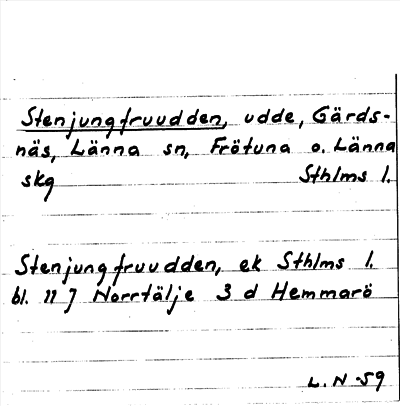 Stenjungfruudden, udde, Gärds-
näs, Länna sn, Frötuna o. Länna
skg Sthlms l.
Stenjungfruudden, ek Sthlms l.
bl. 11 J Norrtälje 3 d Hemmarö
L. N -59